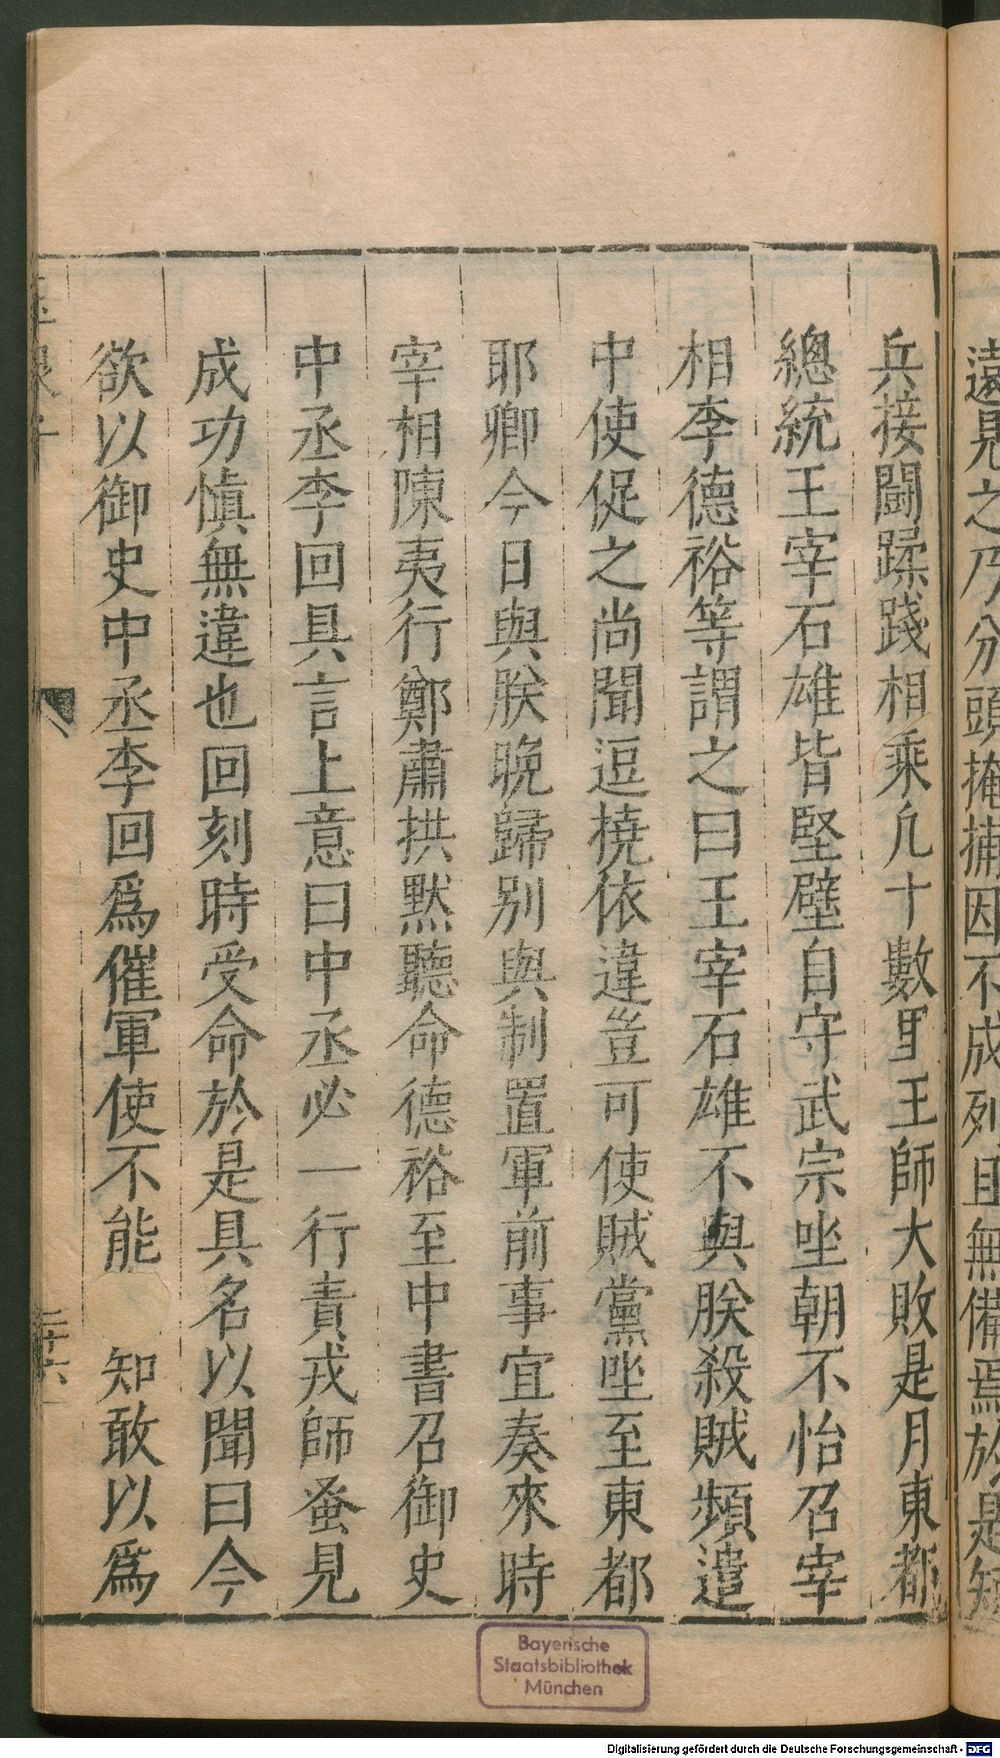 遠見之乃分頭掩捕因不成列且無備焉於是短
兵接鬭蹂踐相乘凡十數里王師大敗是月東都
總統王宰石雄皆堅壁自守武宗坐朝不怡召宰
相李德裕等謂之曰王宰石雄不與朕殺賊頻遣
中使促之尚聞逗撓依違豈可使賊黨坐至東都
耶卿今日與朕晚歸別與制置軍前事宜奏來時
宰相陳夷行鄭肅拱默聽命德裕至中書召御史
中丞李回具言上意曰中丞必一行責戎師蚤見
成功愼無違也回刻時受命於是具名以聞曰今
欲以御史中丞李回爲催軍使不能 知敢以爲
二十六
Bayerische
Staatsbibliothek
München
Digitalisierung gefördert durch die Deutsche Forschungsgemeinschaft - DFG